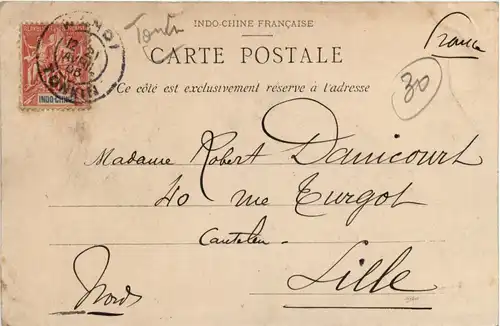 INDO-CHINE FRANÇAISE
CARTE POSTALE
Ce côté est exclusivement réservé à l'adresse
HANOI
TONKIN
INDO-CHINE
France
30
Madame Robert Danicourt
40 rue Turgot
Canteleu
Lille
Nord